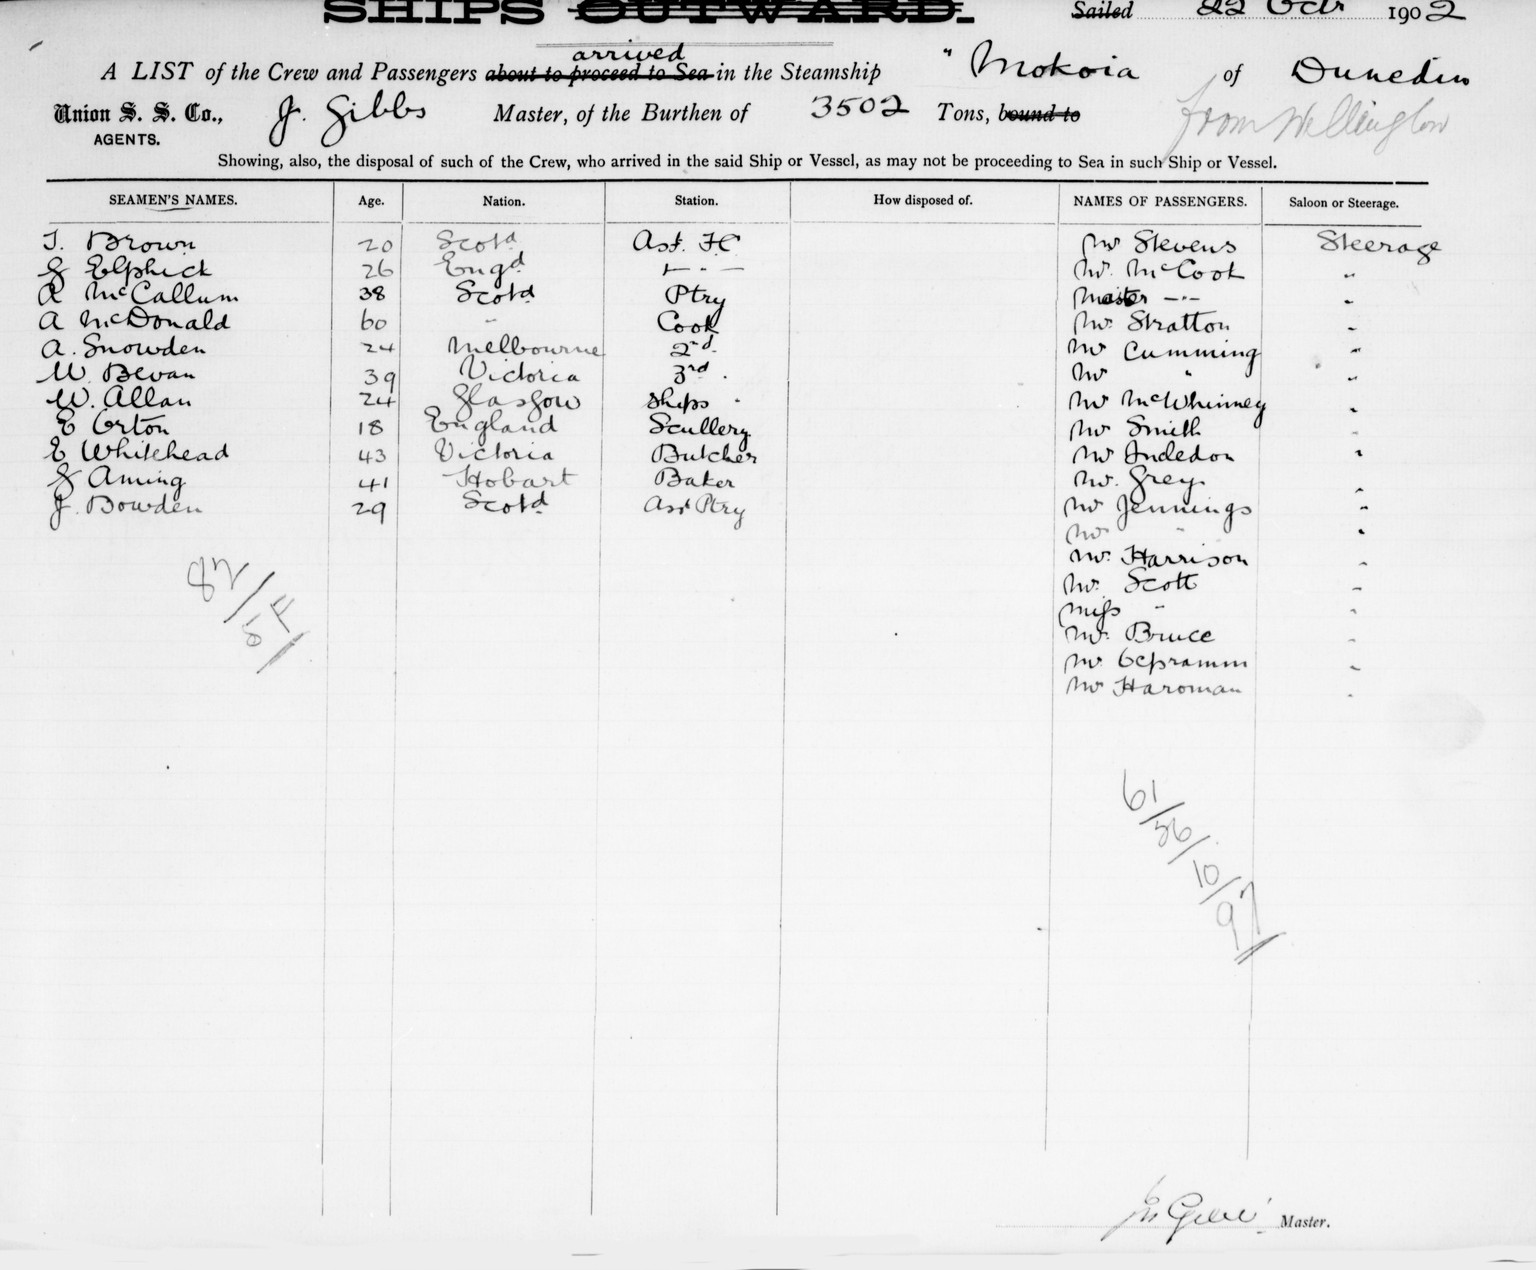 SHIPS OUTWARD.
Sailed 22 Octr 1902
arrived
A LIST of the Crew and Passengers about to proceed to Sea in the Steamship " Mokoia of Dunedin
Union S. S. Co., J. Gibbs Master, of the Burthen of 3502 Tons, bound to from Wellington
AGENTS.
Showing, also, the disposal of such of the Crew, who arrived in the said Ship or Vessel, as may not be proceeding to Sea in such Ship or Vessel.
SEAMEN'S NAMES. Age. Nation. Station. How disposed of. NAMES OF PASSENGERS. Saloon or Steerage.
T. Brown 20 Scotd Ast. FC Mr Stevens Steerage
G Elphick 26 Engd " - " Mr. McCook "
R McCallum 38 Scotd Ptry Master -"- "
A McDonald 60 " Cook Mr. Stratton "
A. Snowden 24 Melbourne 2nd " Mr Cumming "
W. Bevan 39 Victoria 3rd " Mr " "
W. Allan 24 Glasgow Ships " Mr McWhinney "
E Orton 18 England Scullery Mr Smith "
E Whitehead 43 Victoria Butcher Mr Incledon "
G Aming 41 Hobart Baker Mr. Greys "
J. Bowden 29 Scotd Ast Ptry Mr Jennings "
Mr " "
Mr. Harrison "
Mr. Scott "
Miss " "
Mr. Bruce "
Mr "
Mr Haroman "
82/5F/
61/56/10/97/
Jn Gibbs Master.